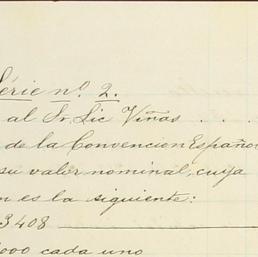 Série nº 2.
al Sr. Lic Viñas . . .
de la Convencion Español
su valor nominal, cuya
n es la siguiente:
3408
000 cada uno